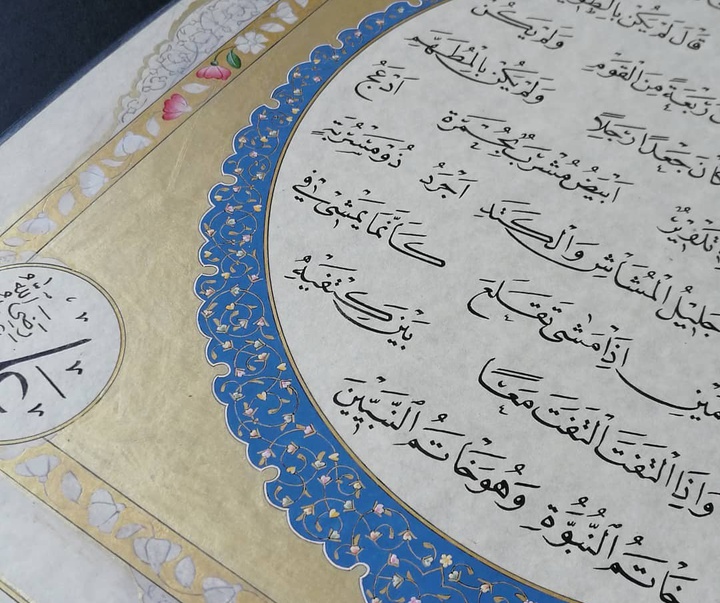 قَالَ لَمْ يَكُنْ بِالطَّوِيلِ
رَبْعَةً مِنَ الْقَوْمِ وَلَمْ يَكُنْ
كَانَ جَعْدًا رَجِلًا وَلَمْ يَكُنْ بِالْمُطَهَّمِ
تَدْوِيرٌ اَبْيَضُ مُشْرَبٌ بِحُمْرَةٍ اَدْعَجُ
جَلِيلُ الْمُشَاشِ وَالْكَتَدِ اَجْرَدُ ذُو مَسْرُبَةٍ
اِذَا مَشَى تَقَلَّعَ كَاَنَّمَا يَمْشِي فِي
وَاِذَا الْتَفَتَ الْتَفَتَ مَعًا بَيْنَ كَتِفَيْهِ
خَاتَمُ النُّبُوَّةِ وَهُوَ خَاتَمُ النَّبِيِّينَ
رضى الله